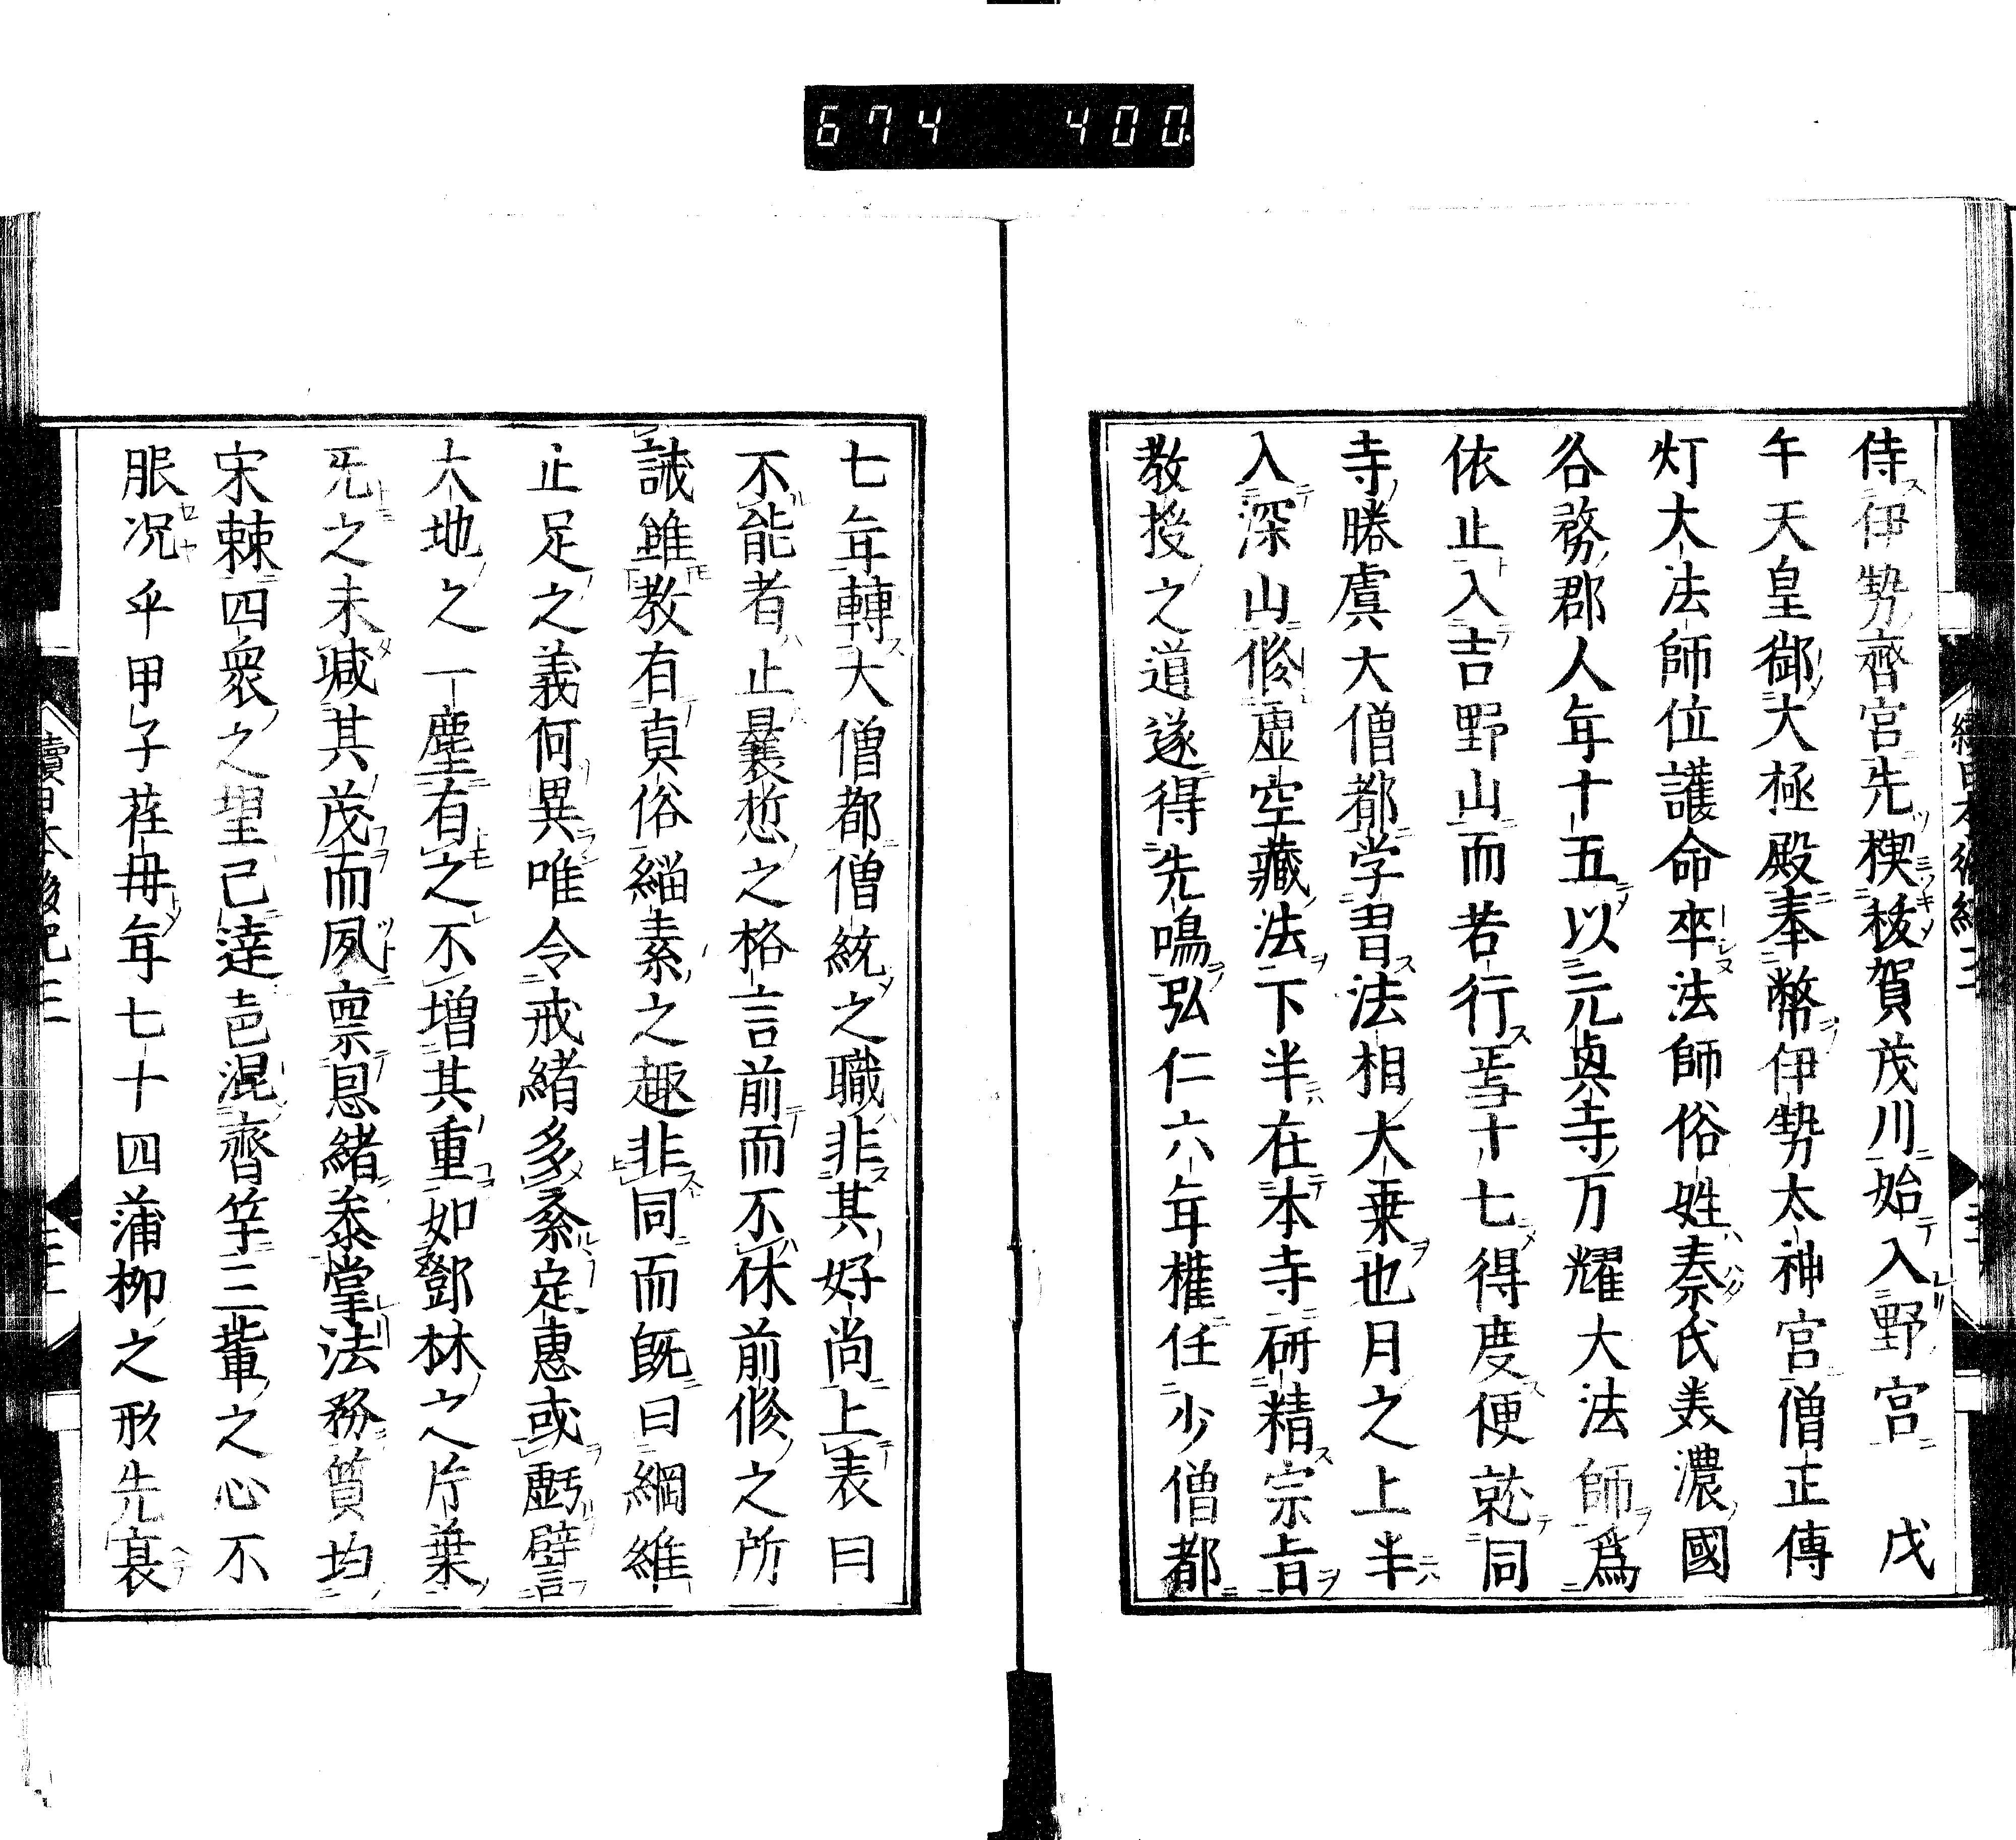 674 400
侍伊勢齊宮先禊秡賀茂川始入野宮　戊
午天皇御大極殿奉幣伊勢太神宮僧正傳
灯大法師位護命卒法師俗姓秦氏美濃國
各務郡人年十五以元興寺万耀大法師爲
依止入吉野山而苦行焉十七得度便就同
寺勝虞大僧都学習法相大乗也月之上半
入深山修虚空藏法下半在本寺研精宗旨
教授之道遂得先鳴弘仁六年擢任少僧都
七年轉大僧都僧統之職非其好尚上表曰
不能者止曩悊之格言前而不休前修之所
誡雖教有真俗緇素之趣非同而既曰綱維
止足之義何異唯令戒緒多紊定惠或虧譬
大地之一塵有之不増其重如鄧林之片葉
旡之未減其茂而夙禀恩緒忝掌法務質均
宋棘四衆之望已違音混齊竽三輩之心不
服况乎甲子荏毎年七十四蒲柳之形先衰
續日本後紀三